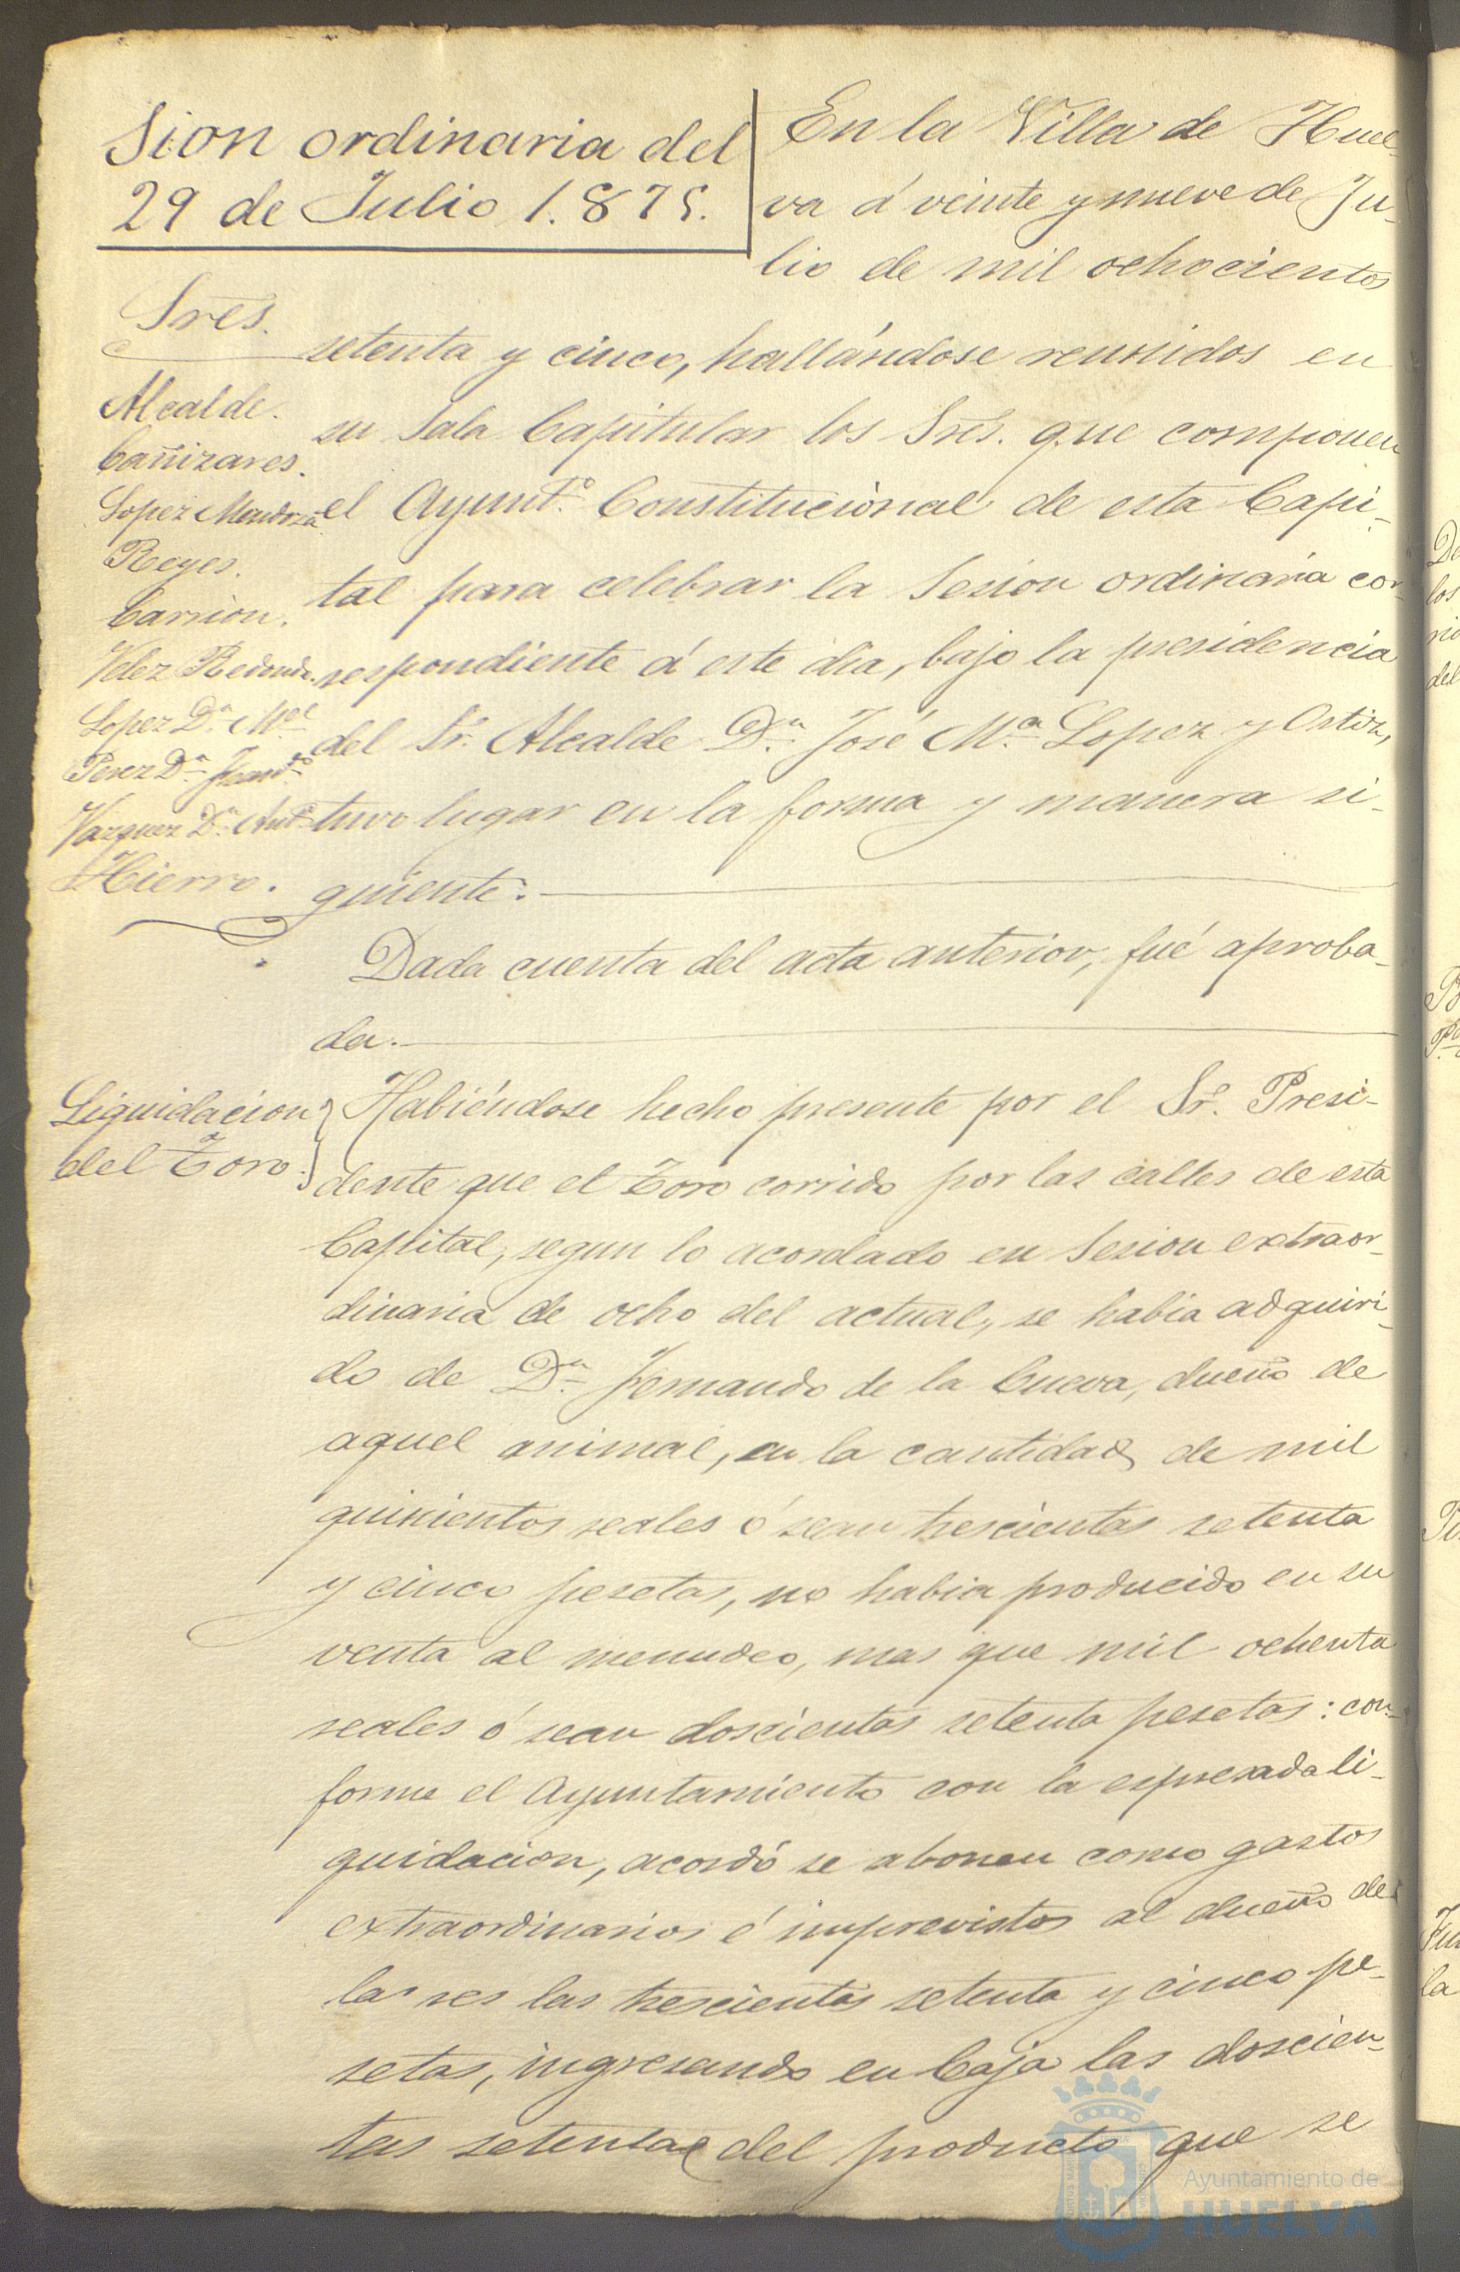 Sion ordinaria del
29 de Julio 1.875.
En la Villa de Huel-
va á veinte y nueve de Ju-
lio de mil ochocientos
setenta y cinco, hallándose reunidos en
su Sala Capitular los Sres. que componen
el Ayuntº. Constitucional de esta Capi-
tal para celebrar la Sesion ordinaria cor-
respondiente á este dia, bajo la presidencia
del Sr. Alcalde Dn. José Mª. Lopez y Ortiz,
tuvo lugar en la forma y manera si-
guiente.
Sres.
Alcalde.
Cañizares.
Lopez Mendoza
Reyes.
Carrion.
Velez Redondo.
Lopez Dn. Mel.
Perez Dn.
Vazquez Dn. Antº.
Hierro.
Dada cuenta del acta anterior, fué aproba-
da.
Liquidacion
del Toro.
Habiéndose hecho presente por el Sr. Presi-
dente que el Toro corrido por las calles de esta
Capital, segun lo acordado en Sesion extraor-
dinaria de ocho del actual, se habia adquiri-
do de Dn. Fernando de la Cueva, dueño de
aquel animal, en la cantidad de mil
quinientos reales ó sean trescientas setenta
y cinco pesetas, no habia producido en su
venta al menudeo, mas que mil ochenta
reales ó sean doscientas setenta pesetas: con-
forme el Ayuntamiento con la espresada li-
quidacion, acordó se abonen como gastos
extraordinarios é imprevistos al dueño de
la res las trescientas setenta y cinco pe-
setas, ingresando en Caja las doscien-
tas setenta del producto que se
Ayuntamiento de
HUELVA